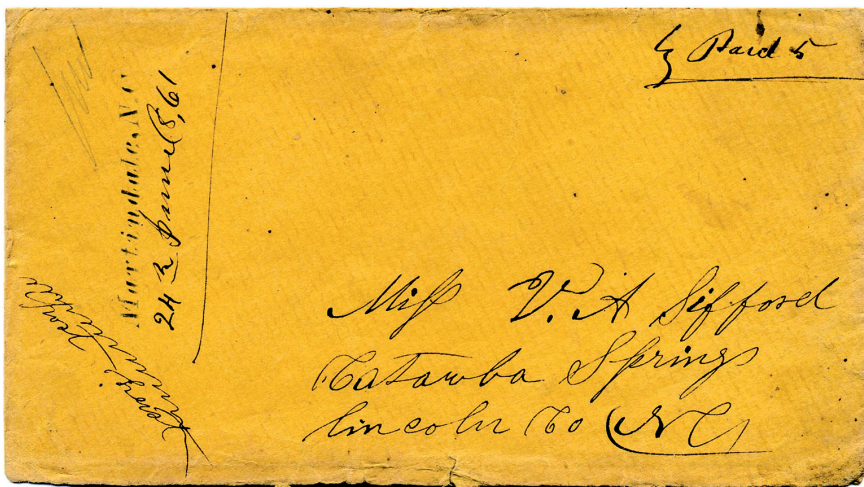 Paid 5
Martindale N.C
24th June 1861
Miss V. A Sifford
Catawba Springs
Lincoln Co NC